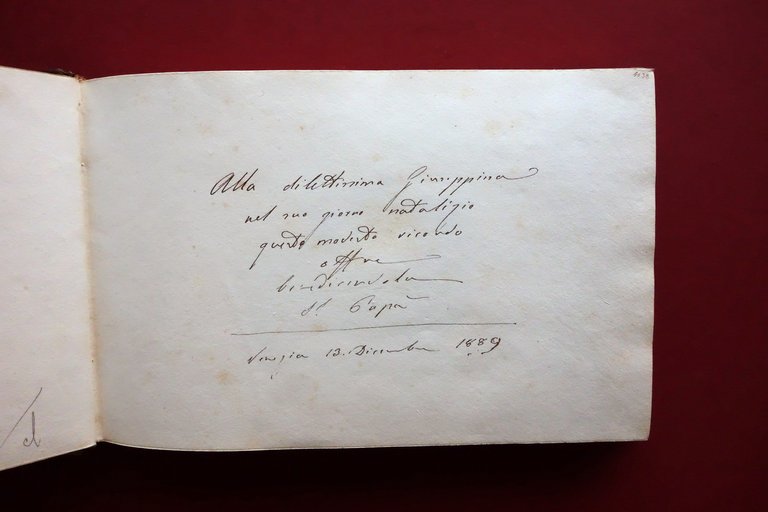 1138
Alla dilettissima Giuseppina
nel suo giorno natalizio
questo modesto ricordo
offre
benedicendola
Il Papà
Venezia 13. Dicembre 1889
d